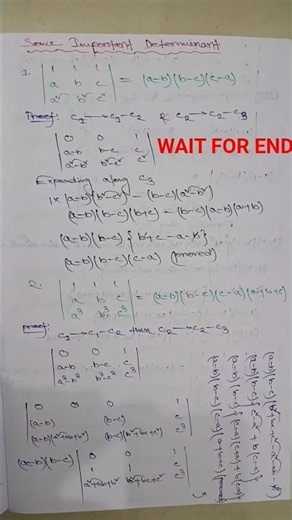 Some Important Determinant
1. | 1 1 1 |
| a b c | = (a-b)(b-c)(c-a)
| a² b² c² |
Proof: C₁→C₁-C₂ & C₂→C₂-C₃
| 0 0 1 |
| a-b b-c c |
| a²-b² b²-c² c² |
WAIT FOR END
Expanding along C₃
1×(a-b)(b²-c²) - (b-c)(a²-b²)
(a-b)(b-c)(b+c) - (b-c)(a-b)(a+b)
(a-b)(b-c) {b+c-a-b}
(a-b)(b-c)(c-a) (proved)
2. | 1 1 1 |
| a b c | = (a-b)(b-c)(c-a)(a+b+c)
| a³ b³ c³ |
Proof: C₁→C₁-C₂ then C₂→C₂-C₃
| 0 0 1 |
| a-b b-c c |
| a³-b³ b³-c³ c³ |
| 0 0 1 |
| (a-b) (b-c) c |
| (a-b)(a²+ab+b²) (b-c)(b²+bc+c²) c³ |
(a-b)(b-c) | 0 0 1 |
| 1 1 |
| a²+ab+b² b²+bc+c² |
(a-b)(b-c)
(a-b)(b-c)(c-a)(a+b+c) (proved)